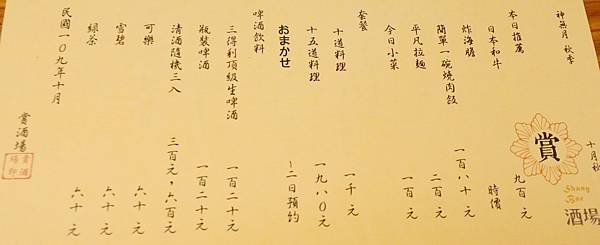 神無月 秋季
十月秋
本日推薦
日本和牛 九百元
炸海膽 時價
簡單一碗燒肉飯 一百八十元
平凡拉麵 二百元
今日小菜 一百元
套餐
十道料理 一千元
十五道料理 一九八〇元
おまかせ ~二日預約
啤酒飲料
三得利頂級生啤酒 一百二十元
瓶裝啤酒 一百二十元
清酒隨機三入 三百元，六百元
可樂 六十元
雪碧 六十元
綠茶 六十元
民國一〇九年十月
賞酒場
賞酒場印
賞
Shang
Bar
酒場